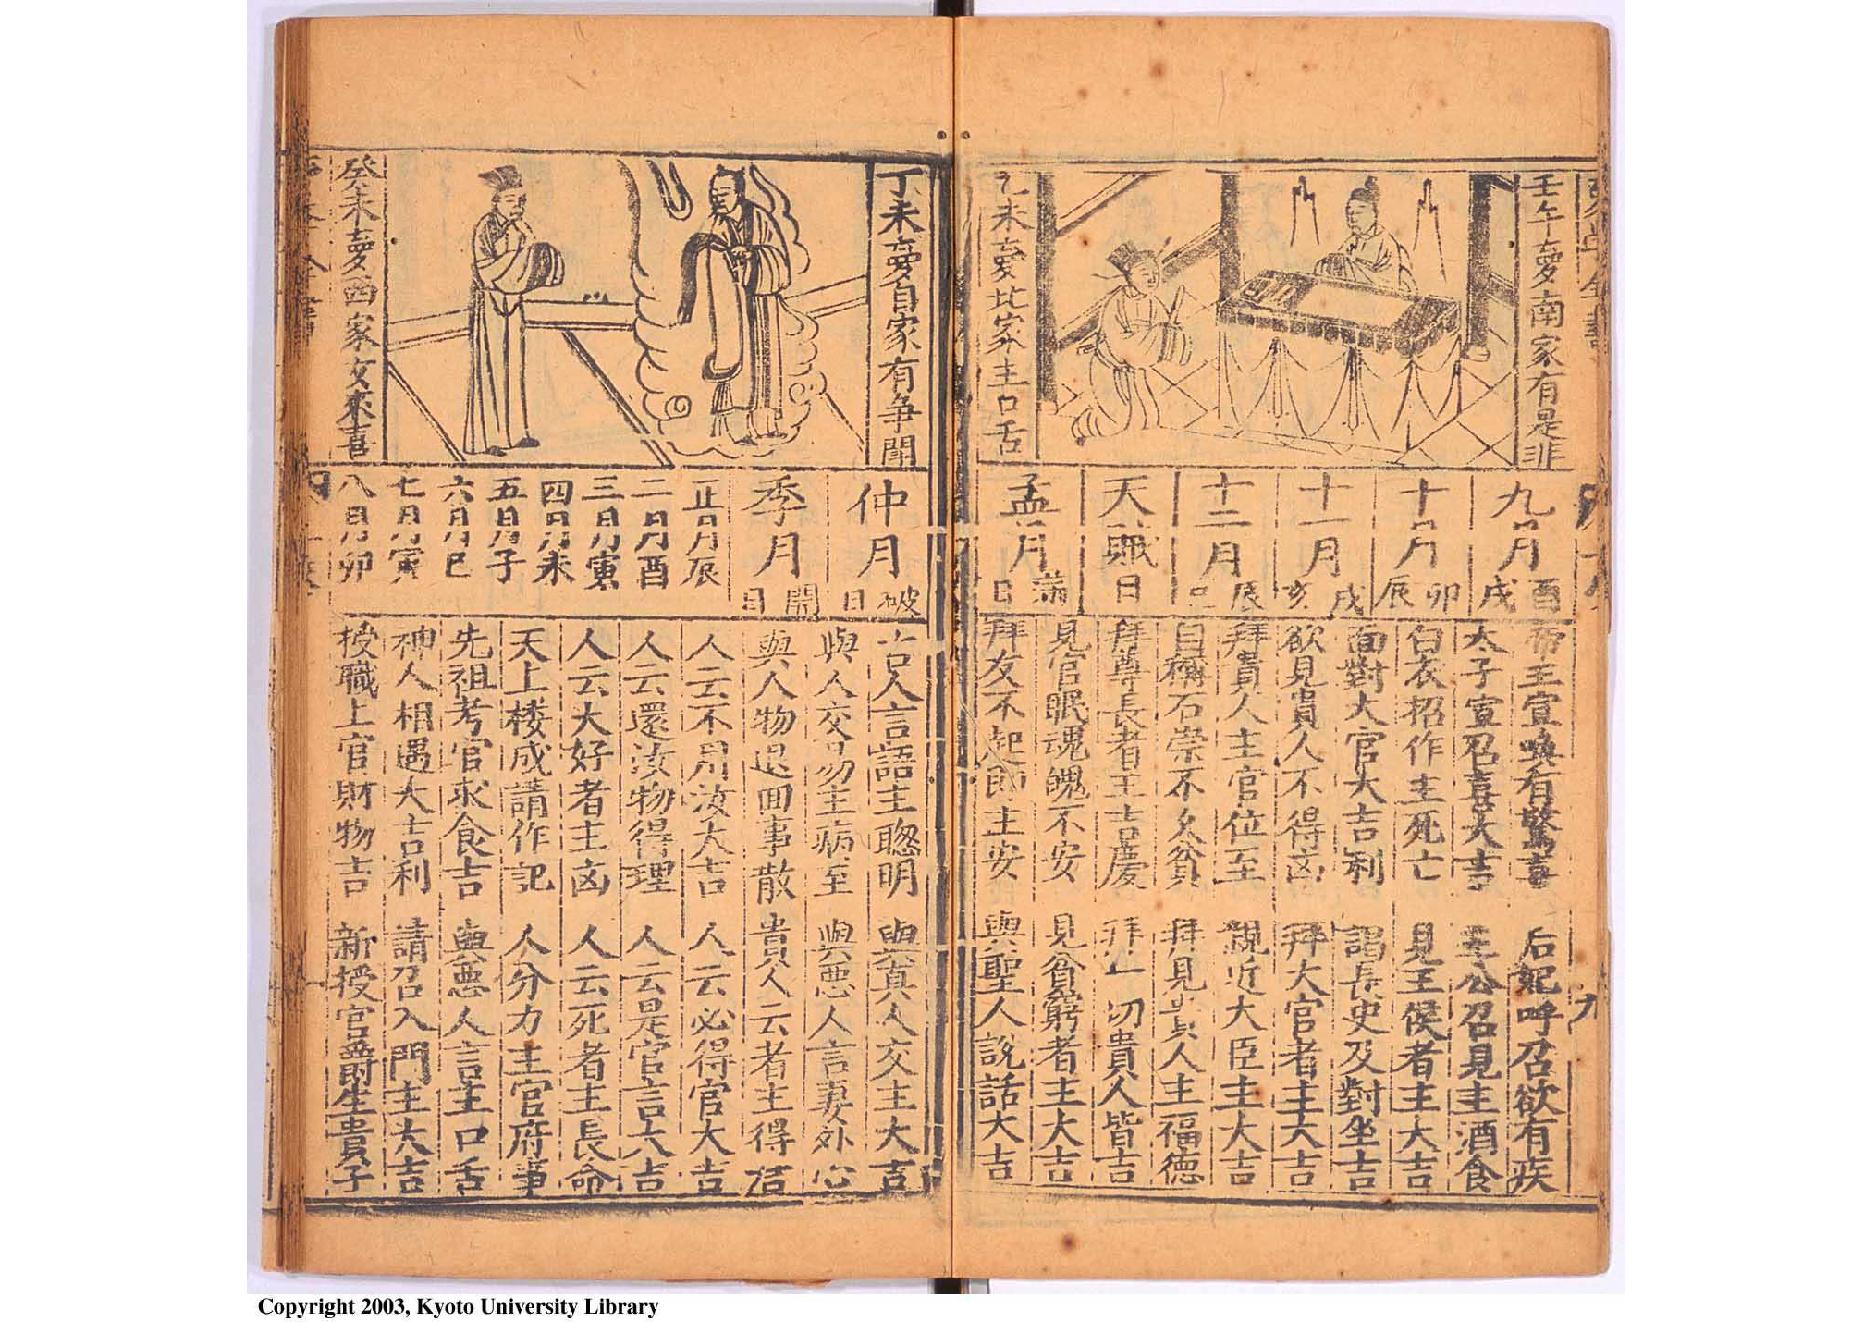 壬午夢南家有是非
乙未夢北家主口舌
九月 酉戌
十月 卯辰
十一月 戌亥
十二月 辰巳
天賊日
孟月 滿日
帝王宣喚有驚喜 后妃呼召欲有疾
太子宣召喜大吉 王公召見主酒食
白衣招作主死亡 見王侯者主大吉
面對大官大吉利 謁長史及對坐吉
欲見貴人不得凶 拜大官者主大吉
拜貴人主官位至 親近大臣主大吉
自稱石崇不久貧 拜見貴人主福德
拜尊長者主吉慶 拜一切貴人皆吉
見官眠魂魄不安 見貧窮者主大吉
拜友不起即主安 與聖人說話大吉
丁未夢自家有爭鬧
癸未夢西家女來喜
仲月 破日
季月 開日
正月辰
二月酉
三月寅
四月未
五月子
六月巳
七月寅
八月卯
古人言語主聰明 與真人交主大吉
與人交易主病至 與惡人言妻外心
與人物退回事散 貴人云者主得洁
人云不用汝大吉 人云必得官大吉
人云還汝物得理 人云是官言大吉
人云大好者主凶 人云死者主長命
天上楼成請作記 人分力主官府事
先祖考官求食吉 與惡人言主口舌
神人相遇大吉利 請召入門主大吉
授職上官財物吉 新授官爵生貴子
Copyright 2003, Kyoto University Library